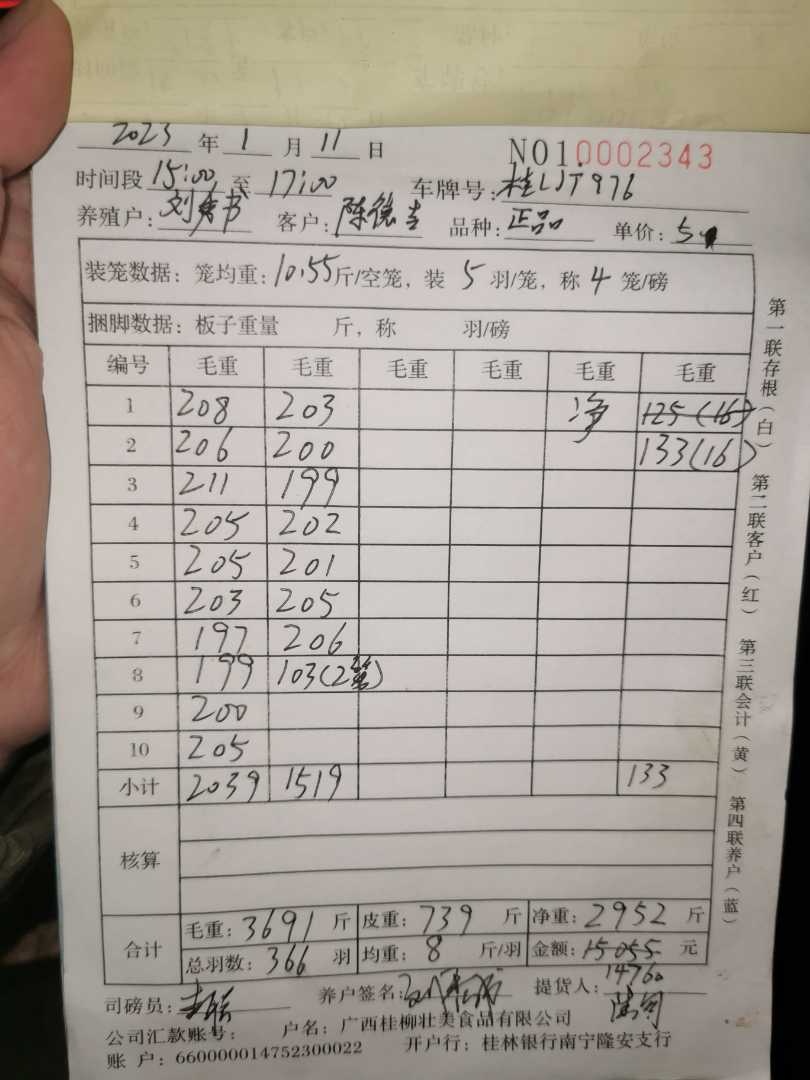 2023年1月11日 NO1.0002343
时间段15:00至17:00 车牌号:桂LJT976
养殖户:刘秀书 客户:陈德吉 品种:正品 单价:5
装笼数据:笼均重:10.55斤/空笼,装5羽/笼,称4笼/磅
捆脚数据:板子重量 斤,称 羽/磅
编号 毛重 毛重 毛重 毛重 毛重 毛重
1 208 203 净 125(16)
2 206 200 133(16)
3 211 199
4 205 202
5 205 201
6 203 205
7 197 206
8 199 103(2笼)
9 200
10 205
小计 2039 1519 133
核算
合计 毛重:3691斤 皮重:739斤 净重:2952斤
总羽数:366羽 均重:8斤/羽 金额:15055元
14760
司磅员: 养户签名: 提货人:
公司汇款账号: 户名:广西桂柳壮美食品有限公司
账 户:660000014752300022 开户行:桂林银行南宁隆安支行
第一联存根(白)
第二联客户(红)
第三联会计(黄)
第四联养户(蓝)